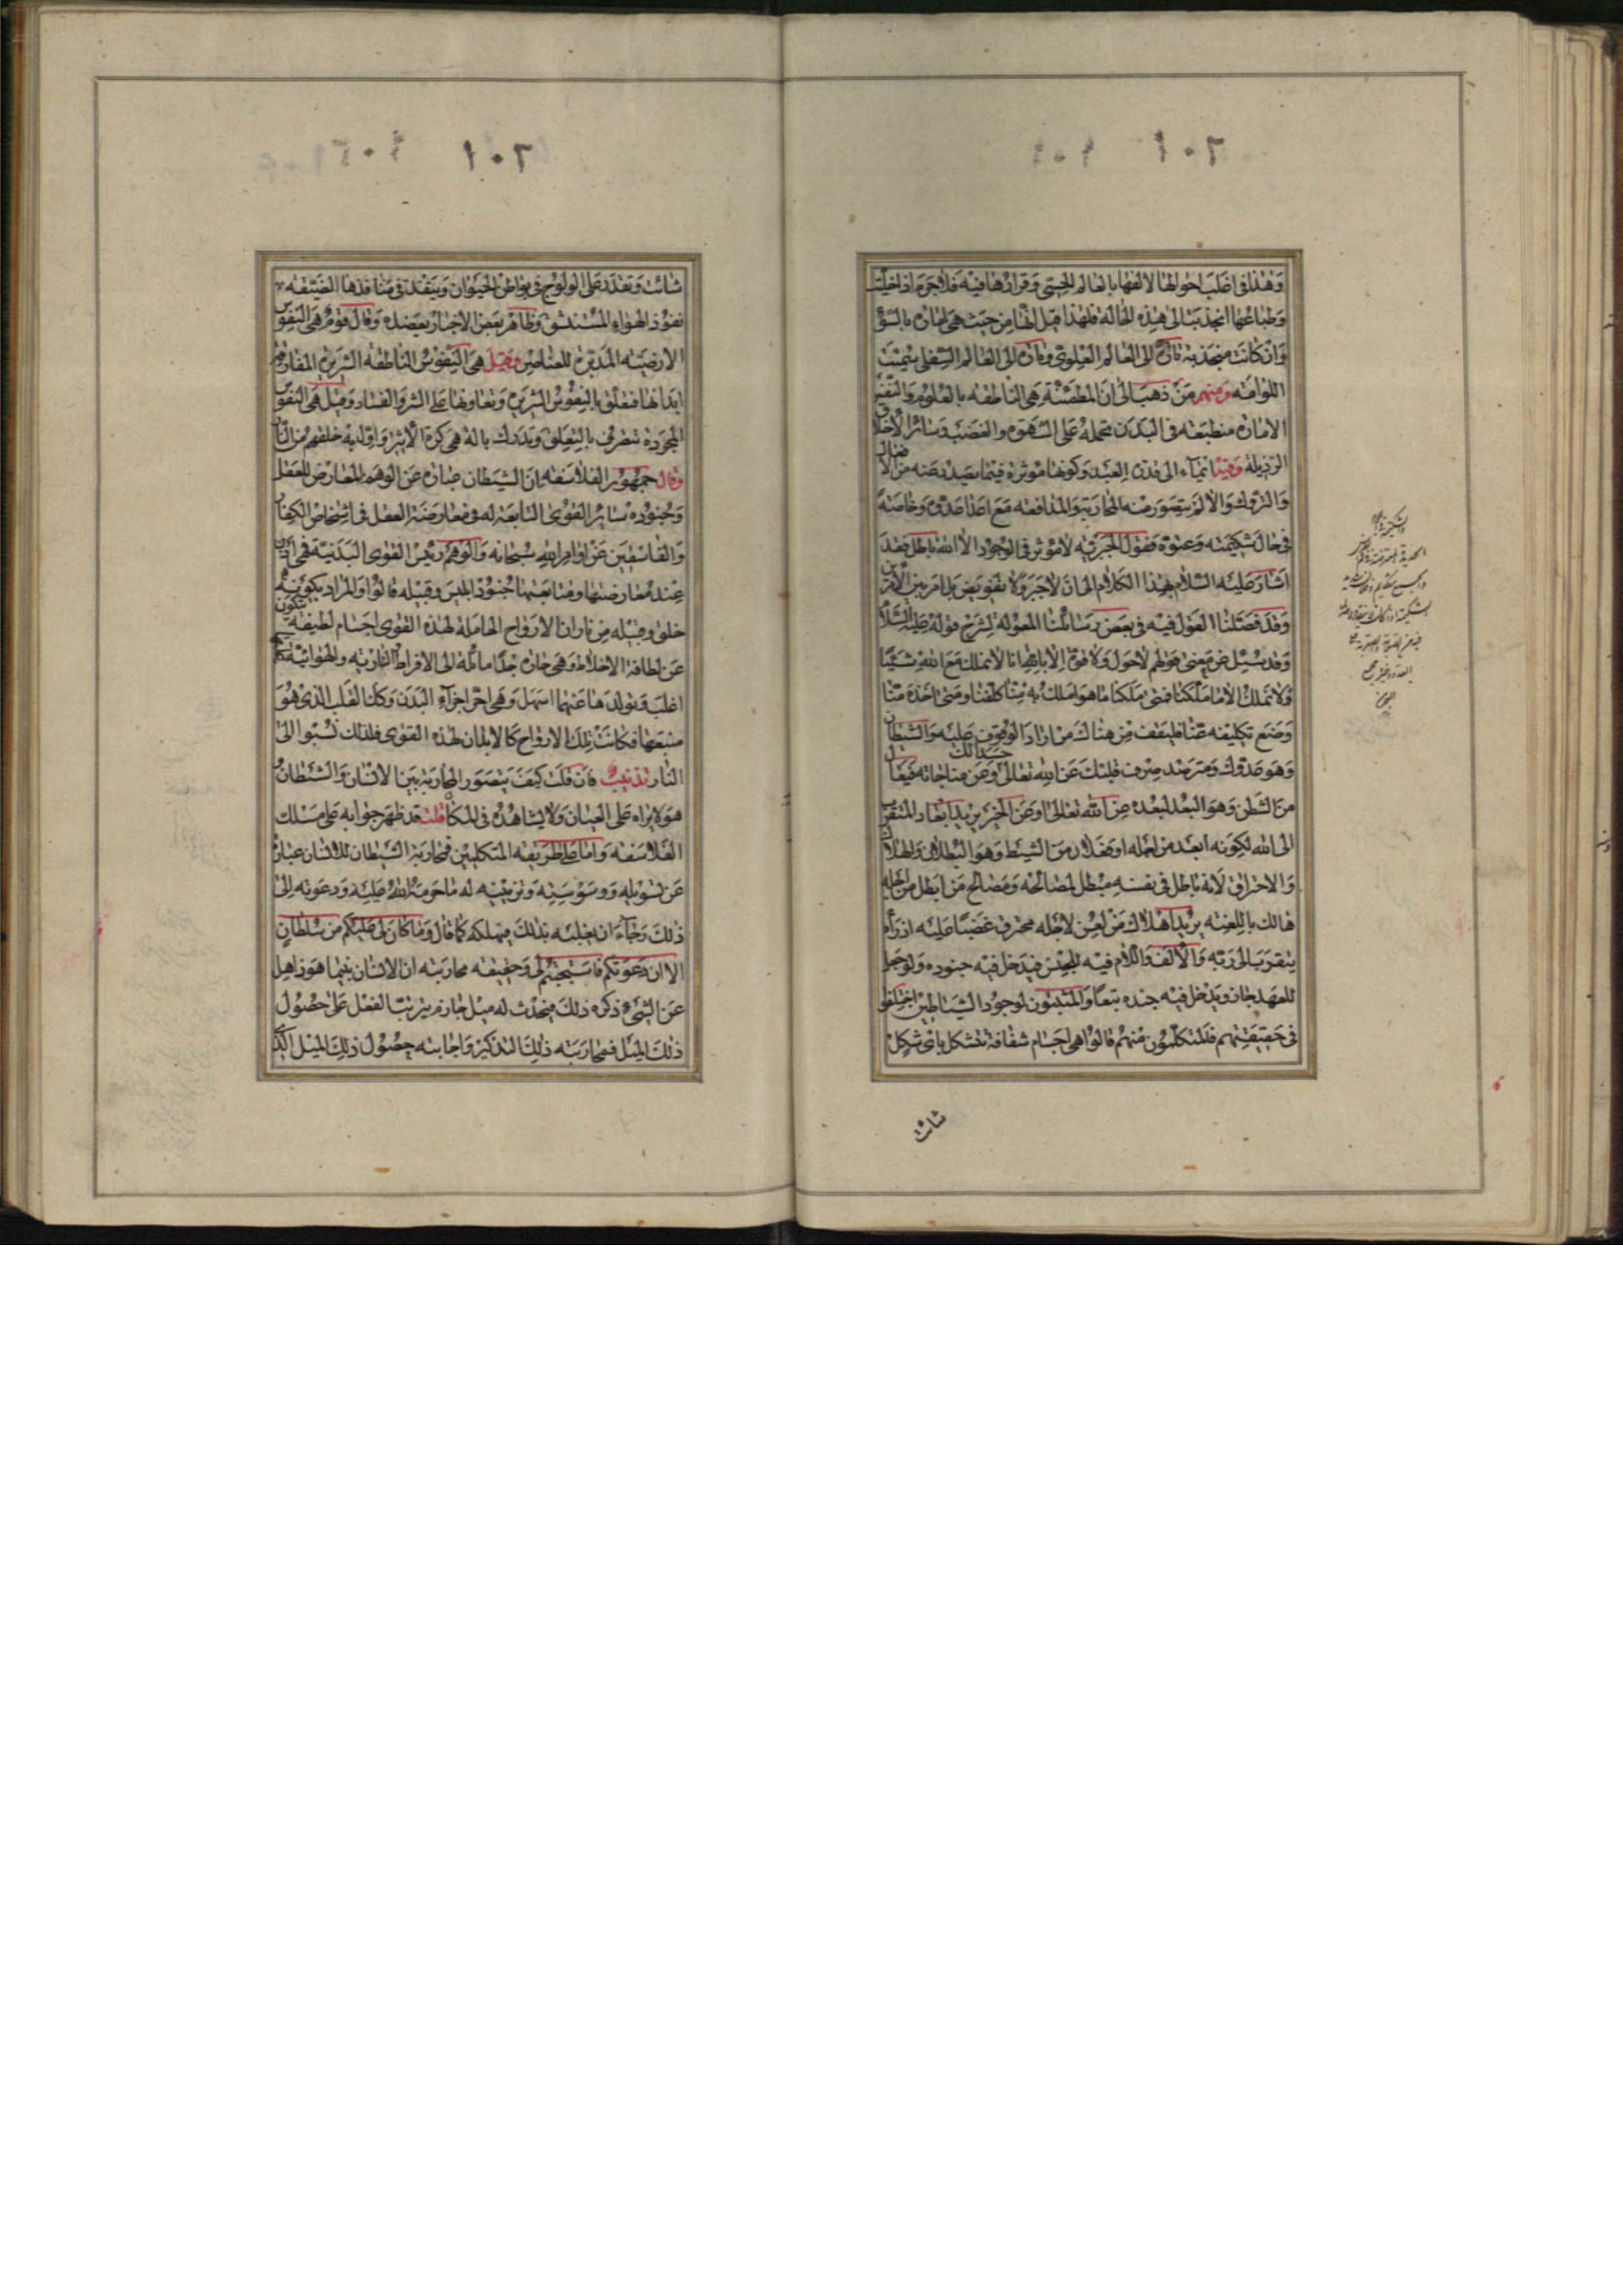 ١٠٢
وهذا في اغلب احوالها لالفها بالعالم الحسي وقرارها فيه فلا جرم اذا خليت
وطباعها انجذبت الى هذه الحالة فلهذا قيل انها من حيث هي امارة بالسوء
وان كانت منجذبة تارة الى العالم العلوي وتارة الى العالم السفلي سميت
اللوامة ومنهم من ذهب الى ان المطمئنة هي الناطقة بالعلوم والنفس
الامارة منطبعة في البدن تحمله على الشهوة والغضب وسائر الاخلاق
الرذيلة وفيه ايماء الى قدرة العبد وكونها موثرة فيما يصدر عنه من الافعال
والتروك والا لم يتصور منه المحاربة والمدافعة مع اعدا عدوه وخاصة
في حال شكيمته وعتوه فقول الجبرية لا موثر في الوجود الا الله باطل فقد
اشار عليه السلام بهذا الكلام الى ان لا جبر ولا تفويض بل امر بين الامرين
وقد فصلنا القول فيه في بعض رسائلنا المعوله لشرح قوله عليه السلام
وقد سئل عن معنى قولهم لا حول ولا قوة الا بالله انا لا نملك مع الله شيئا
ولا نملك الا ما ملكنا فمتى ملكنا ما هو املك به منا كلفنا ومتى اخذه منا
وضع تكليفه عنا فليقف من هناك من اراد الوقوف عليه والشيطان
وهو عدوك ومترصد صرف قلبك عن الله تعالى وعن مناجاته فيعال
حسدا لك
من الشطن وهو البعد لبعده عن الله تعالى او عن الخير يريد ابعاد المتقرب
الى الله لكونه ابعد من اجله او فعلان من الشيط وهو البطلان والهلاك
والاحتراق لانه باطل في نفسه مبطل لمصالحه ومصالح من ابطل من اجله
هالك باللعنة يريد اهلاك من لعن لاجله محترق غضبا عليه اذ رام
يتقرب الى ربه والالف واللام فيه للجنس فيدخل فيه جنوده ولو جعل
للعهد جاز ويدخل فيه جنده تبعا والمثبتون لوجود الشياطين اختلفوا
في حقيقتهم فالمتكلمون منهم قالوا هي اجسام شفافة تتشكل باي شكل
شائت
١٠٢
شائت وتقدر على الولوج في بواطن الحيوان وينفذ في منافذها الضيقة
نفوذ الهواء المستنشق وظاهر بعض الاخبار يعضده وقال قوم هي النفوس
الارضية المدبرة للعناصر وقيل هي النفوس الناطقة الشريرة المفارقة
ابدانها فتعلق بالنفوس الشريرة وتعاونها على الشر والفساد وقيل هي النفوس
المجردة تتصرف بالتعلق وتدرك بالة هي كرة الاثير واول به خلقهم من النار
وقال جمهور الفلاسفة ان الشيطان عبارة عن الوهم المعارض للعقل
وجنوده سائر القوى التابعة له في معارضة العقل في اشخاص الكفار
والفاسقين عن اوامر الله سبحانه والوهم رئيس القوى البدنية فهي اذن
عند معارضتها ومتابعتها جنود ابليس وقبيله قالوا والمراد بكونه
خلق وقبيله من نار ان الارواح الحاملة لهذه القوى اجسام لطيفة تتكون
عن لطافة الاخلاط وهي حارة جدا مائلة الى الافراط النارية والهوائية
اغلب وتولدها عنهما اسهل وهي احر اجزاء البدن وكذا القلب الذي هو
منبعها فكانت تلك الارواح كالابدان لهذه القوى فلذلك نسبوا الى
النار تذنيب فان قلت كيف يتصور المحاربة بين الانسان والشيطان
هو لا يراه على العيان ولا يشاهده في المكان قلت قد ظهر جوابه على مسلك
الفلاسفة واما على طريقة المتكلمين فمحاربة الشيطان للانسان عبارة
عن تسويله ووسوسته وتزيينه له ما حرمه الله عليه ودعوته الى
ذلك رجاء ان يجلبه بذلك فيهلكه كما قال وما كان لي عليكم من سلطان
الا ان دعوتكم فاستجبتم لي وحقيقة محاربته ان الانسان بينما هو ذاهل
عن الشيء ذكره ذلك فيحدث له ميل جازم يترتب الفعل على حصول
ذلك الميل فمحاربته ذلك التذكير واجابته حصول ذلك الميل الذي